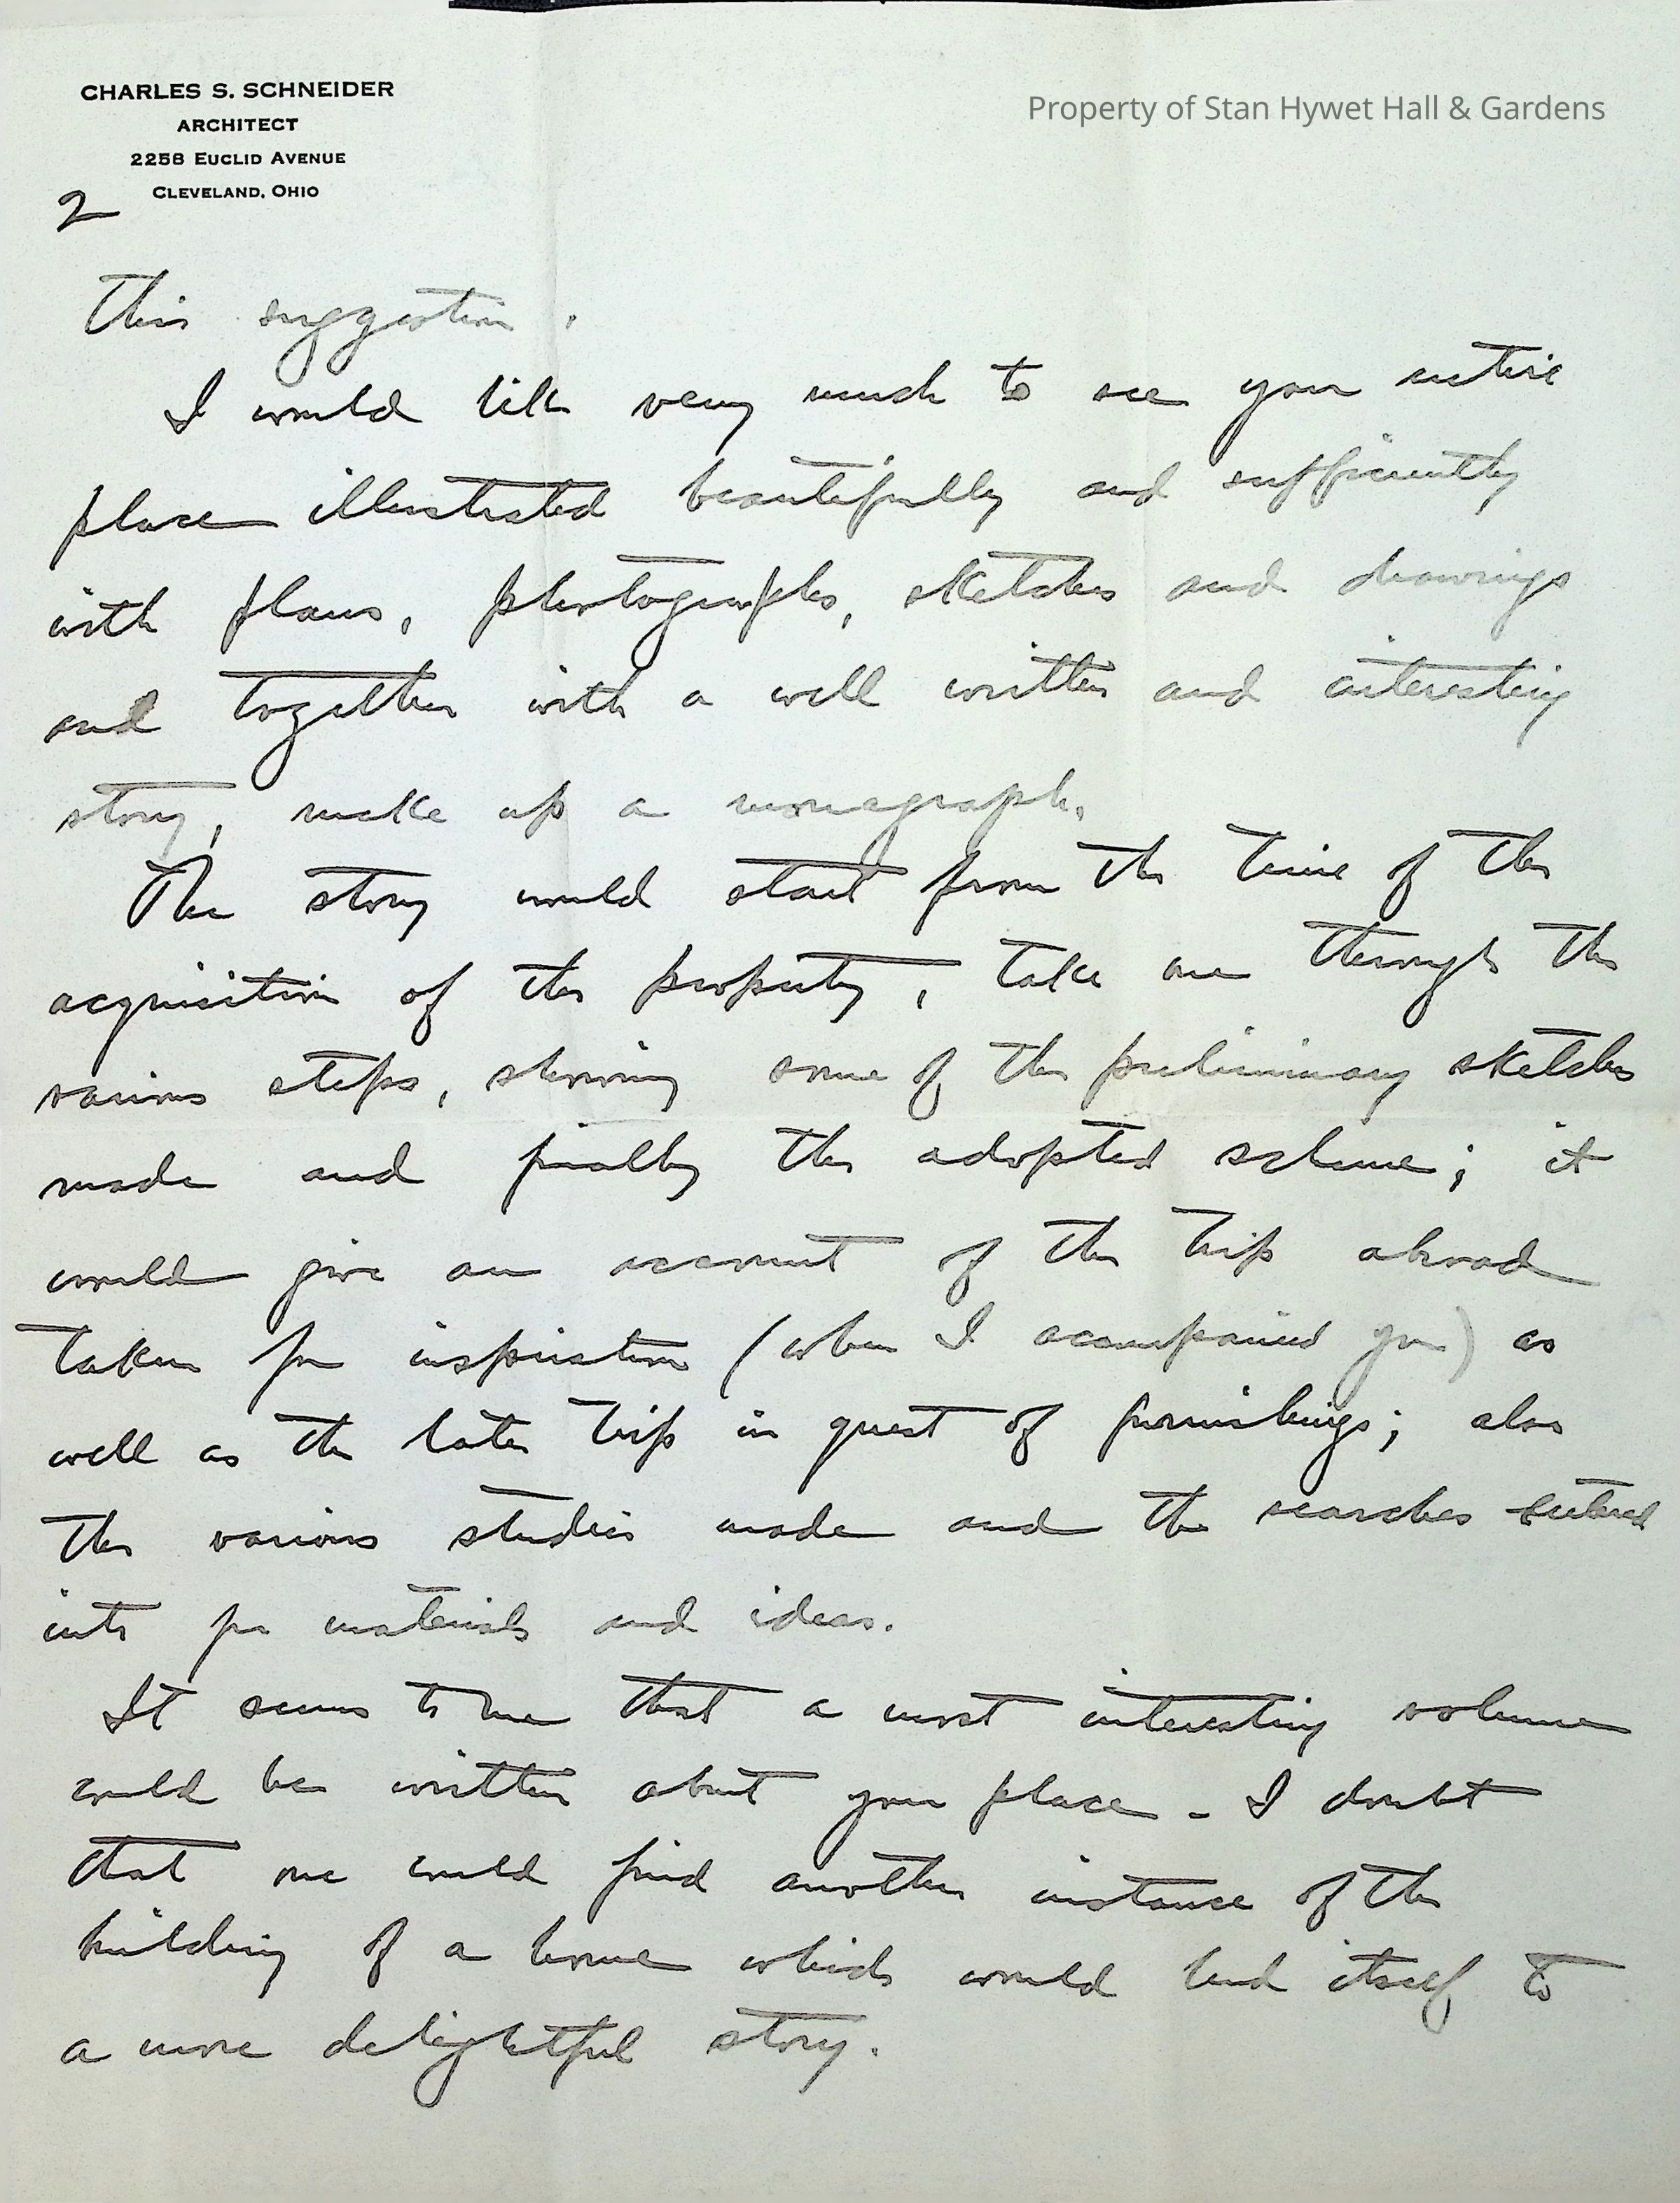 CHARLES S. SCHNEIDER
ARCHITECT
2258 EUCLID AVENUE
CLEVELAND, OHIO
Property of Stan Hywet Hall & Gardens
2
This suggestion.
I would like very much to see your entire
place illustrated beautifully and sufficiently
with plans, photographs, sketches and drawings
and together with a well written and interesting
story, make up a monograph.
The story would start from the time of the
acquisition of the property, take one through the
various steps, showing some of the preliminary sketches
made and finally the adopted scheme; it
would give an account of the trip abroad
taken for inspiration (when I accompanied you) as
well as the later trip in quest of furnishings; also
the various studies made and the searches entered
into for materials and ideas.
It seems to me that a most interesting volume
could be written about your place - I doubt
that one could find another instance of the
building of a home which would lend itself to
a more delightful story.